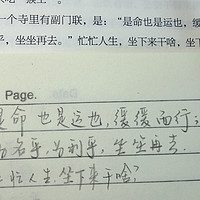 一个寺里有副门联，是：“是命也是运也，缓
乎，坐坐再去。”忙忙人生，坐下来干啥，坐下
Page.
是命 也是运也，缓缓而行；
为名乎，为利乎，坐坐再去.
忙人生，坐下来干啥？